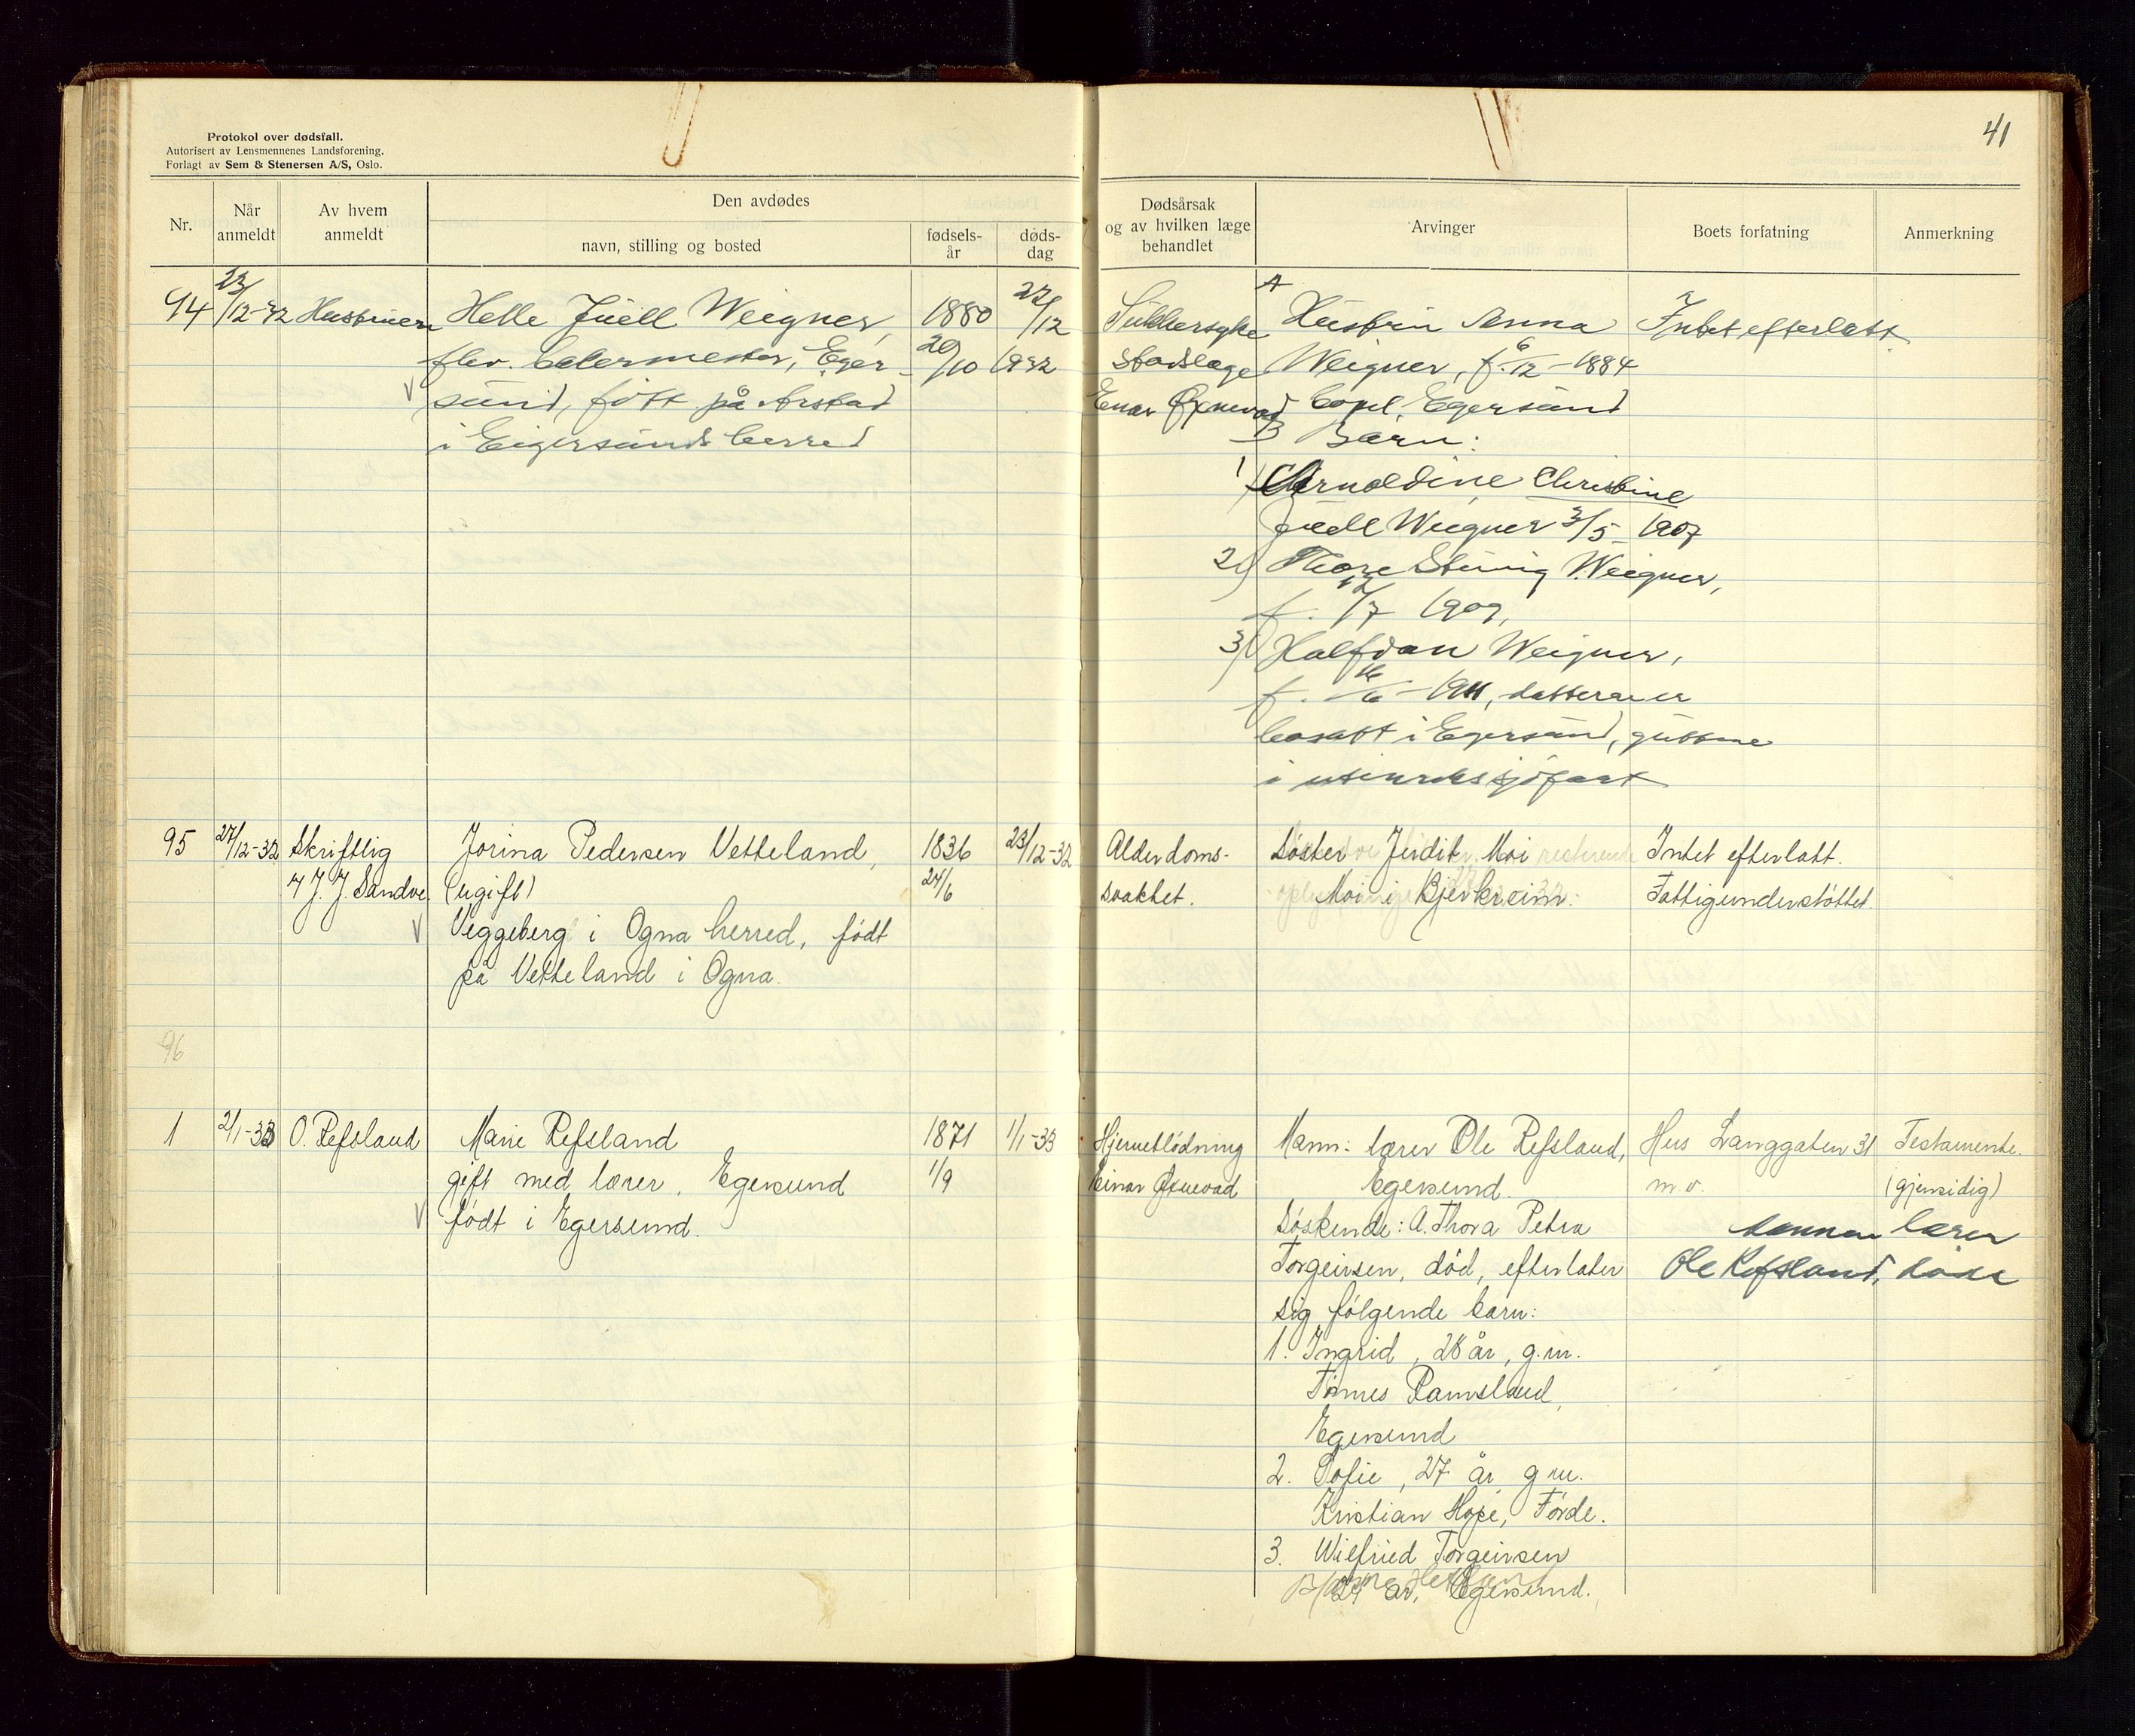 Protokol over dødsfall.
Autorisert av Lensmennenes Landsforening.
Forlagt av Sem & Stenersen A/S, Oslo.
41
Nr.
Når anmeldt
Av hvem anmeldt
Den avdødes
navn, stilling og bosted
fødsels-år
døds-dag
Dødsårsak og av hvilken læge behandlet
Arvinger
Boets forfatning
Anmerkning
94
23/12-32
Hustruen
Helle Juell Weigner,
fhv. malermester, Eger-
sund, født på Årstad
i Eigersunds herred
1880
20/10
22/12
1932
Sukkersyke
stadslæge
Einar Øxnevad
A
Hustru Anna
Weigner, f. 6/12-1884
bopel, Egersund
B Barn:
1) Arnoldine Christine
Juell Weigner 3/5-1907
2) Thore Weigner,
f. 12/7 1909,
3) Halfdan Weigner,
f. 16/6-1911, datteren er
bosatt i Egersund, guttene
i utenriks sjøfart
Intet efterlatt
95
27/12-32
Skriftlig
v/ J. J. Sandve
Jorina Pedersen Vetteland,
(ugift)
Veggeberg i Ogna herred, født
på Vetteland i Ogna.
1836
24/6
23/12-32
Alderdoms-
svakhet.
Søster Jerdit Moi
Moi i Bjerkreim.
Intet efterlatt.
Fattigunderstøttet.
96
1
2/1-33
O. Refsland
Marie Refsland
gift med lærer, Egersund
født i Egersund.
1871
1/9
1/1-33
Hjerneblødning
Einar Øxnevad
Mann: lærer Ole Refsland,
Egersund.
Søskende: A. Thora Petra
Torgeirsen, død, efterlater
sig følgende barn:
1. Ingrid, 28 år, g.m.
Tønnes Ramsland,
Egersund
2. Sofie, 27 år g m.
Kristian Hope, Førde.
3. Wilfried Torgeirsen
24 år, Egersund.
Hus Langgaten 31
m.v.
Testamente.
(gjensidig)
mannen lærer
Ole Refsland,